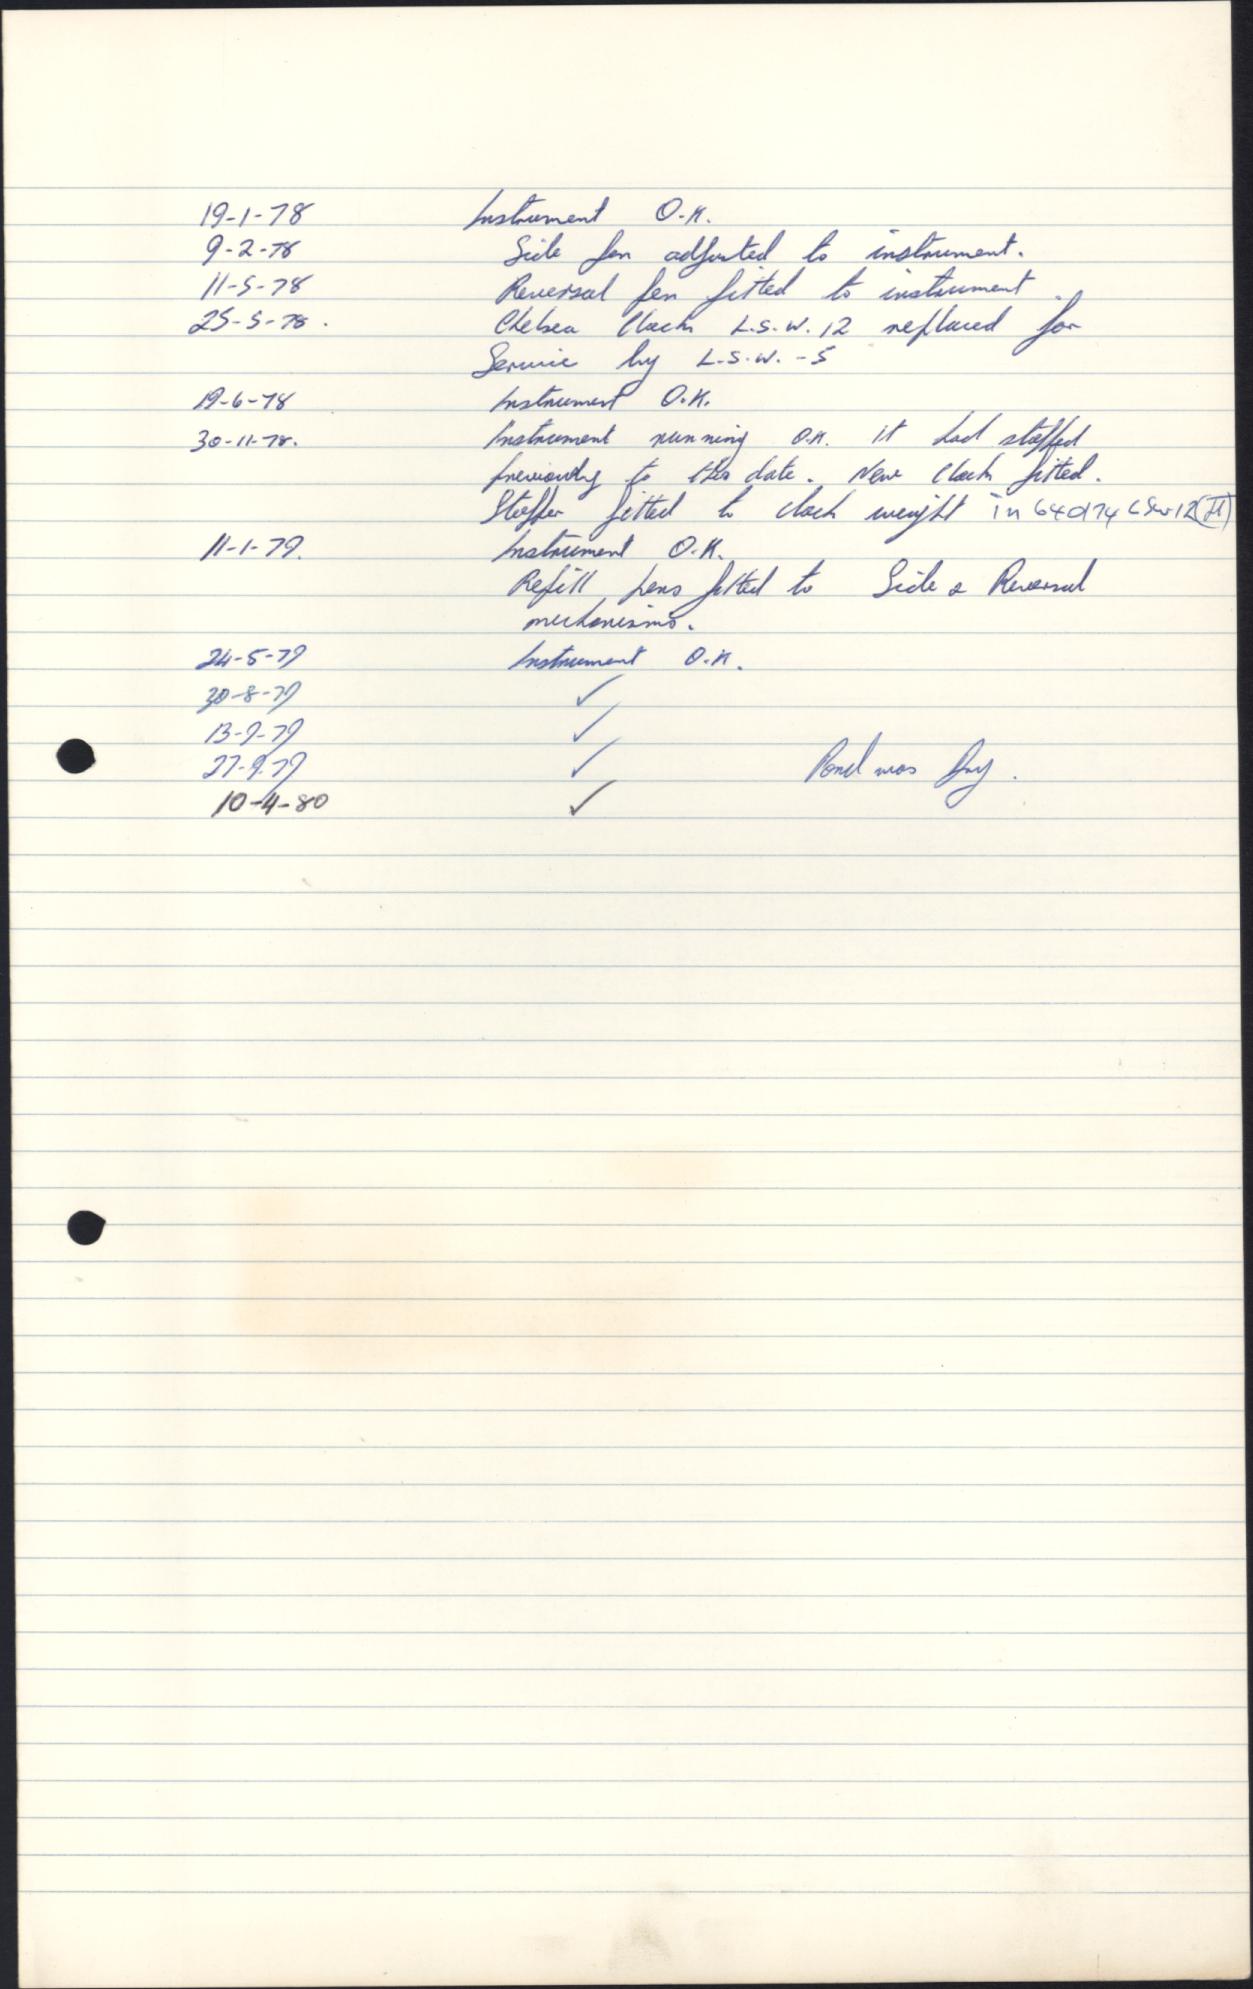 19-1-78 Instrument O.K.
9-2-78 Side pen adjusted to instrument.
11-5-78 Reversal pen fitted to instrument.
25-5-78. Chelsea Clock L.S.W. 12 replaced for
Service by L.S.W. -5
19-6-78 Instrument O.K.
30-11-78. Instrument running O.K. it had stopped
previously to this date. New Clock fitted.
Stopper fitted to clock weight in LSW12
11-1-79. Instrument O.K.
Refill pens fitted to Side & Reversal
mechanisms.
24-5-79 Instrument O.K.
30-8-79 ✓
13-9-79 ✓
27-9-79 ✓ Pond was Dry.
10-4-80 ✓